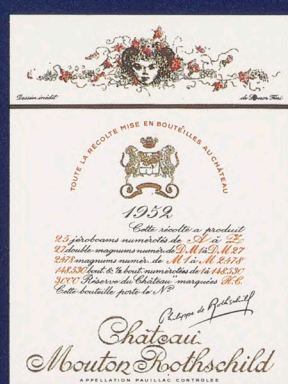 Dessin inédit
de Léonor Fini
TOUTE LA RÉCOLTE MISE EN BOUTEILLES AU CHÂTEAU
1952
Cette récolte a produit
25 jéroboams numérotés de A à Z
27 double magnums numér. de D.M1 à D.M27
2478 magnums numér. de M1 à M2478
148.530 bout. & ½ bout. numérotées de 1 à 148.530
3000 "Réserve du Château" marquées R.C.
Cette bouteille porte le Nº
Philippe de Rothschild
Château
Mouton Rothschild
APPELLATION PAUILLAC CONTROLÉE